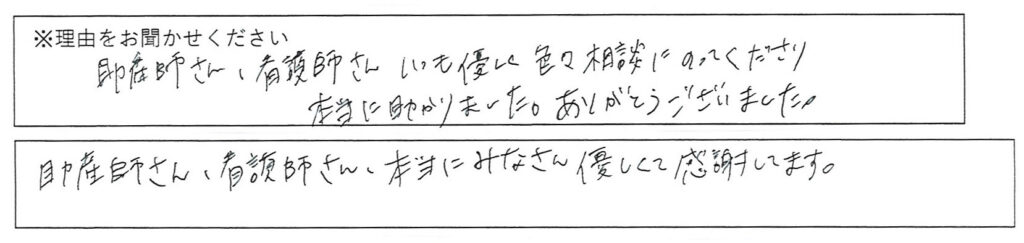 ※理由をお聞かせください
助産師さん、看護師さん いつも優しく色々相談にのってくださり
本当に助かりました。ありがとうございました。
助産師さん、看護師さん、本当にみなさん優しくて感謝してます。